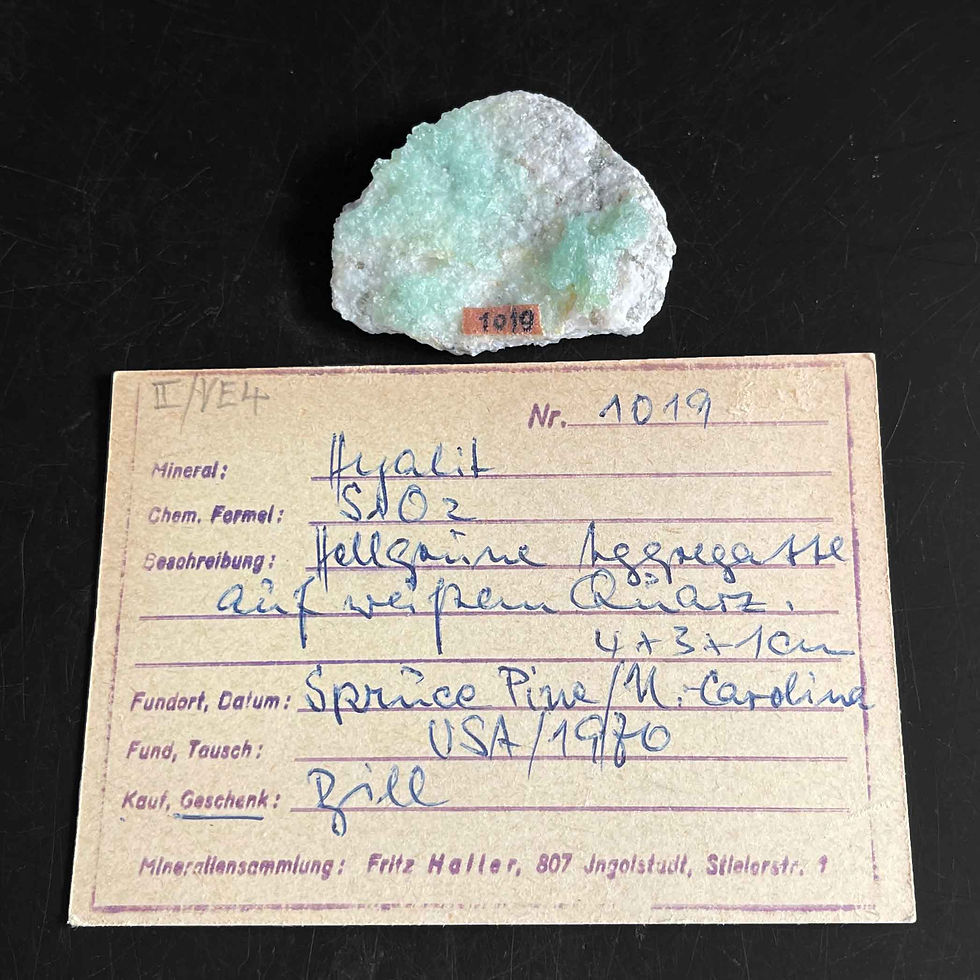 1019
II/VE4
Nr. 1019
Mineral: Hyalit
Chem. Formel: SiO2
Beschreibung: Hellgrüne Aggregatte
auf weißem Quarz.
4x3x1cm
Fundort, Datum: Spruce Pine/N. Carolina
Fund, Tausch: USA/1970
Kauf, Geschenk: Bill
Mineraliensammlung: Fritz Haller, 807 Jngolstadt, Stielerstr. 1